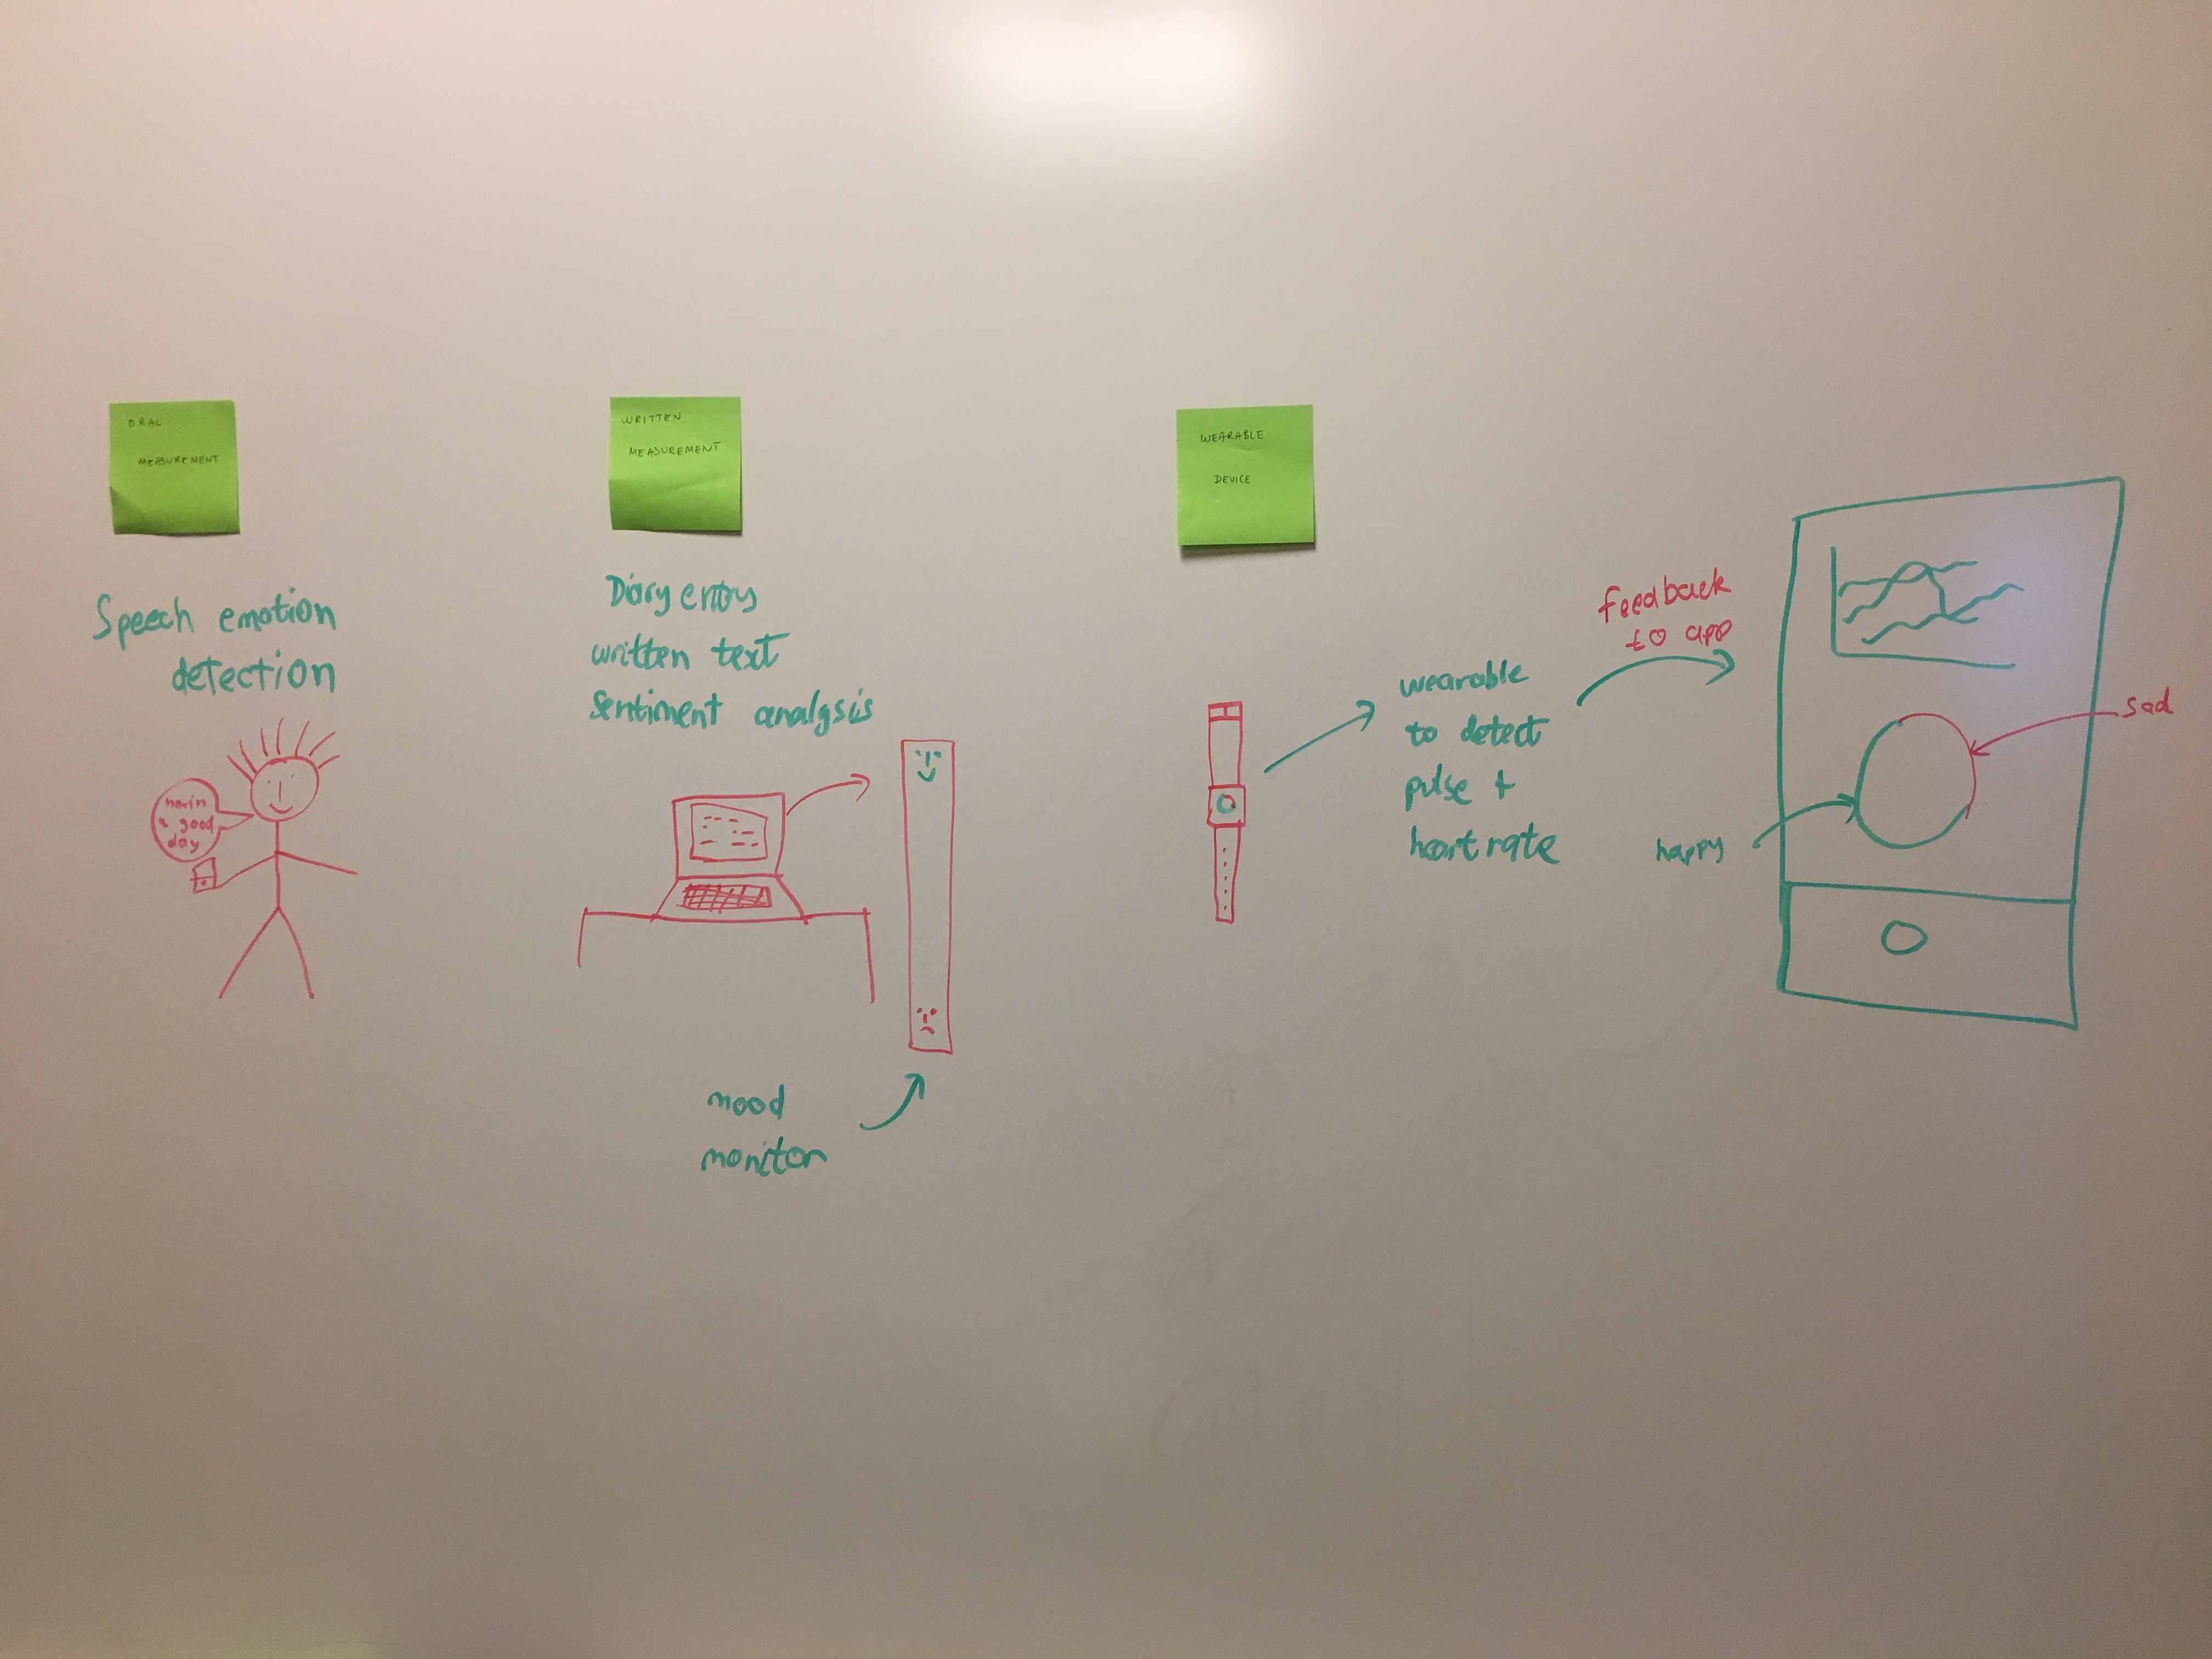 ORAL
MEASUREMENT
Speech emotion
detection
havin
a good
day
WRITTEN
MEASUREMENT
Diary entry
written text
sentiment analysis
mood
monitor
WEARABLE
DEVICE
wearable
to detect
pulse +
heart rate
feedback
to app
sad
happy